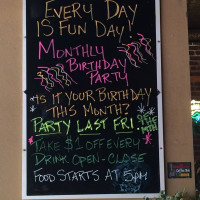 EVERY DAY
IS FUN DAY!
MONTHLY
BIRTHDAY
PARTY
IS IT YOUR BIRTHDAY
THIS MONTH?
PARTY LAST FRI.
TAKE $1 OFF EVERY
DRINK OPEN-CLOSE
FOOD STARTS AT 5PM